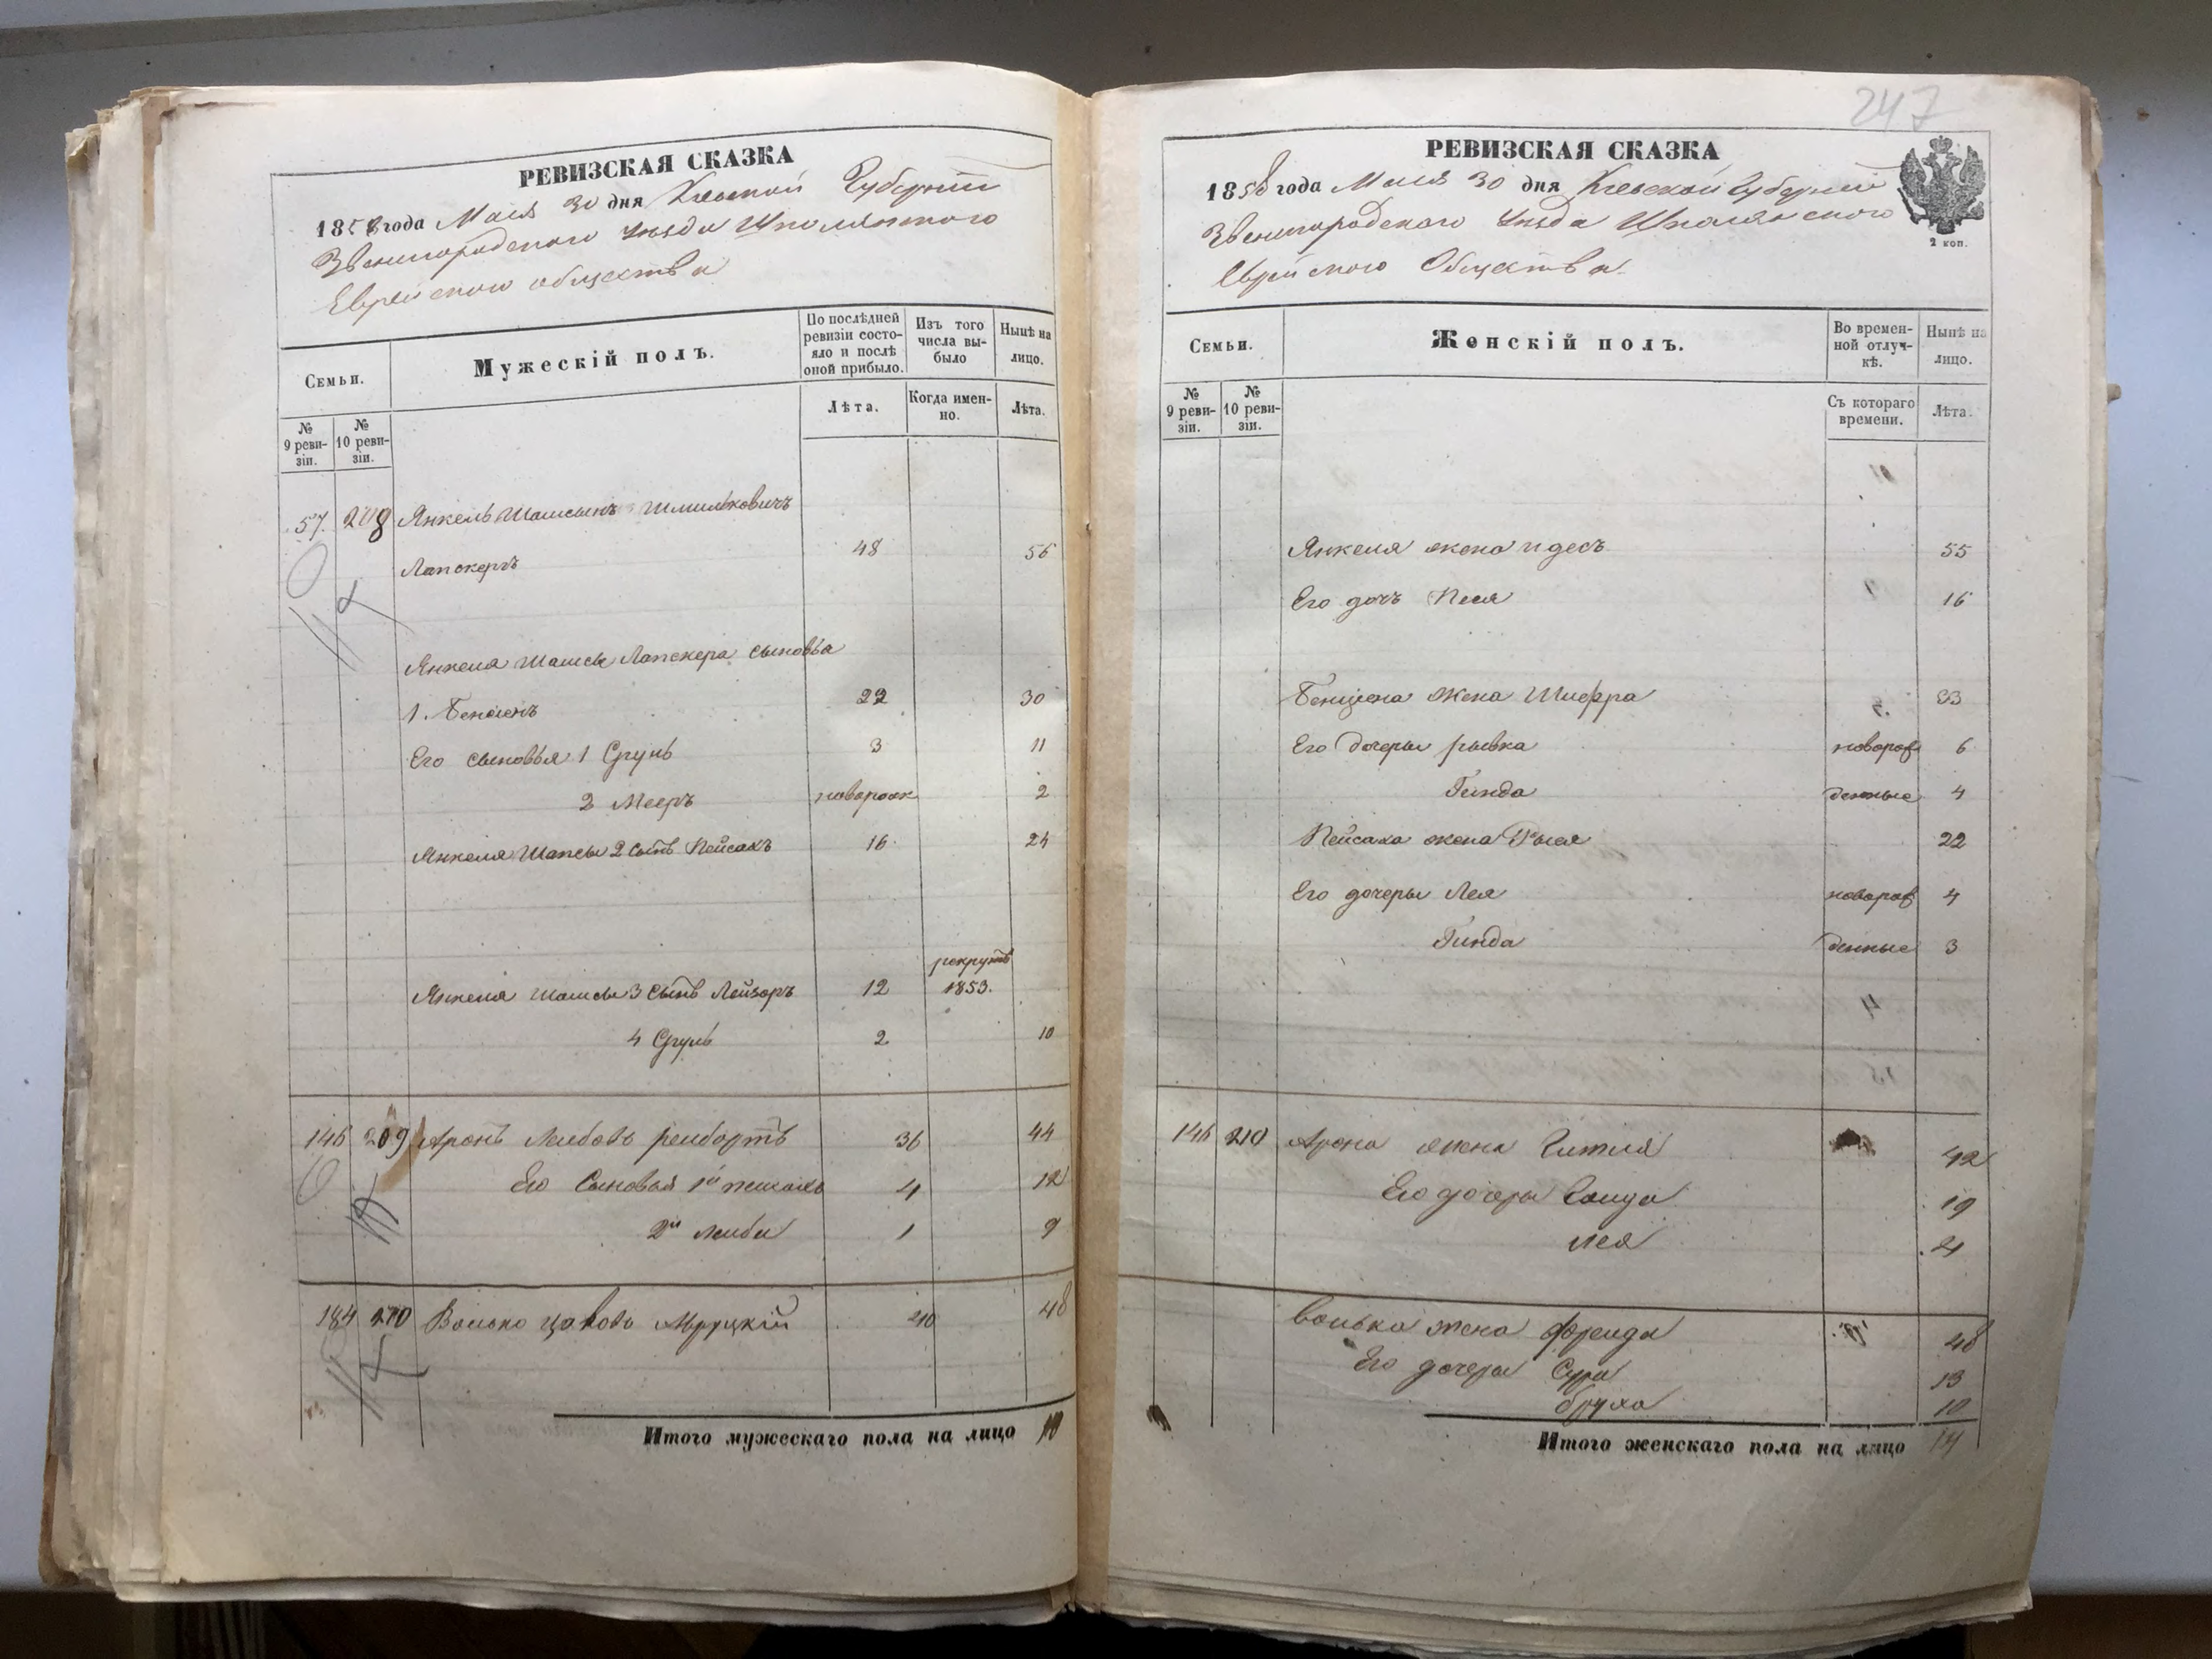 РЕВИЗСКАЯ СКАЗКА
1858 года Маія 30 дня Кіевской Губерніи
Звенигородского Уезда Шполянского
Еврейского общества
Семьи.
Мужескій полъ.
По послѣдней ревизіи состояло и послѣ оной прибыло.
Изъ того числа выбыло
Нынѣ на лицо.
№ 9 реви-зіи.
№ 10 реви-зіи.
Лѣта.
Когда имен-но.
Лѣта.
57 208 Янкель Шапсынъ Шмильковичъ
Лапскеръ 48 56
Янкеля Шапсы Лапскера сыновья
1. Бенціенъ 22 30
Его сыновья 1 Сруль 3 11
2 Мееръ новорож 2
Янкеля Шапсы 2 сынъ Пейсахъ 16 24
рекрутъ
Янкеля Шапсы 3 сынъ Лейзоръ 12 1853.
4 Сруль 2 10
146 209 Аронъ Лейбовъ 36 44
Его Сыновья 1й 4 12
2й Лейба 1 9
184 210 Волько 40 48
Итого мужескаго пола на лицо 10
247
РЕВИЗСКАЯ СКАЗКА
1858 года Маія 30 дня Кіевской Губерніи
Звенигородского Уезда Шполянского
Еврейского Общества
2 коп.
Семьи.
Женскій полъ.
Во времен-ной отлуч-кѣ.
Нынѣ на лицо.
№ 9 реви-зіи.
№ 10 реви-зіи.
Съ котораго времени.
Лѣта.
Янкеля жена Идесъ 55
Его дочь Песя 16
Бенціена жена Шифра 33
Его дочеры Рывка новорож 6
Гинда денные 4
Пейсаха жена Рыся 22
Его дочеры Лея новорож 4
Гинда денные 3
146 210 Арона жена Гитля 42
Его дочеры 19
Лея 4
Волька жена Фрейда 48
Его дочеры Сура 13
Бруха 10
Итого женскаго пола на лицо 14